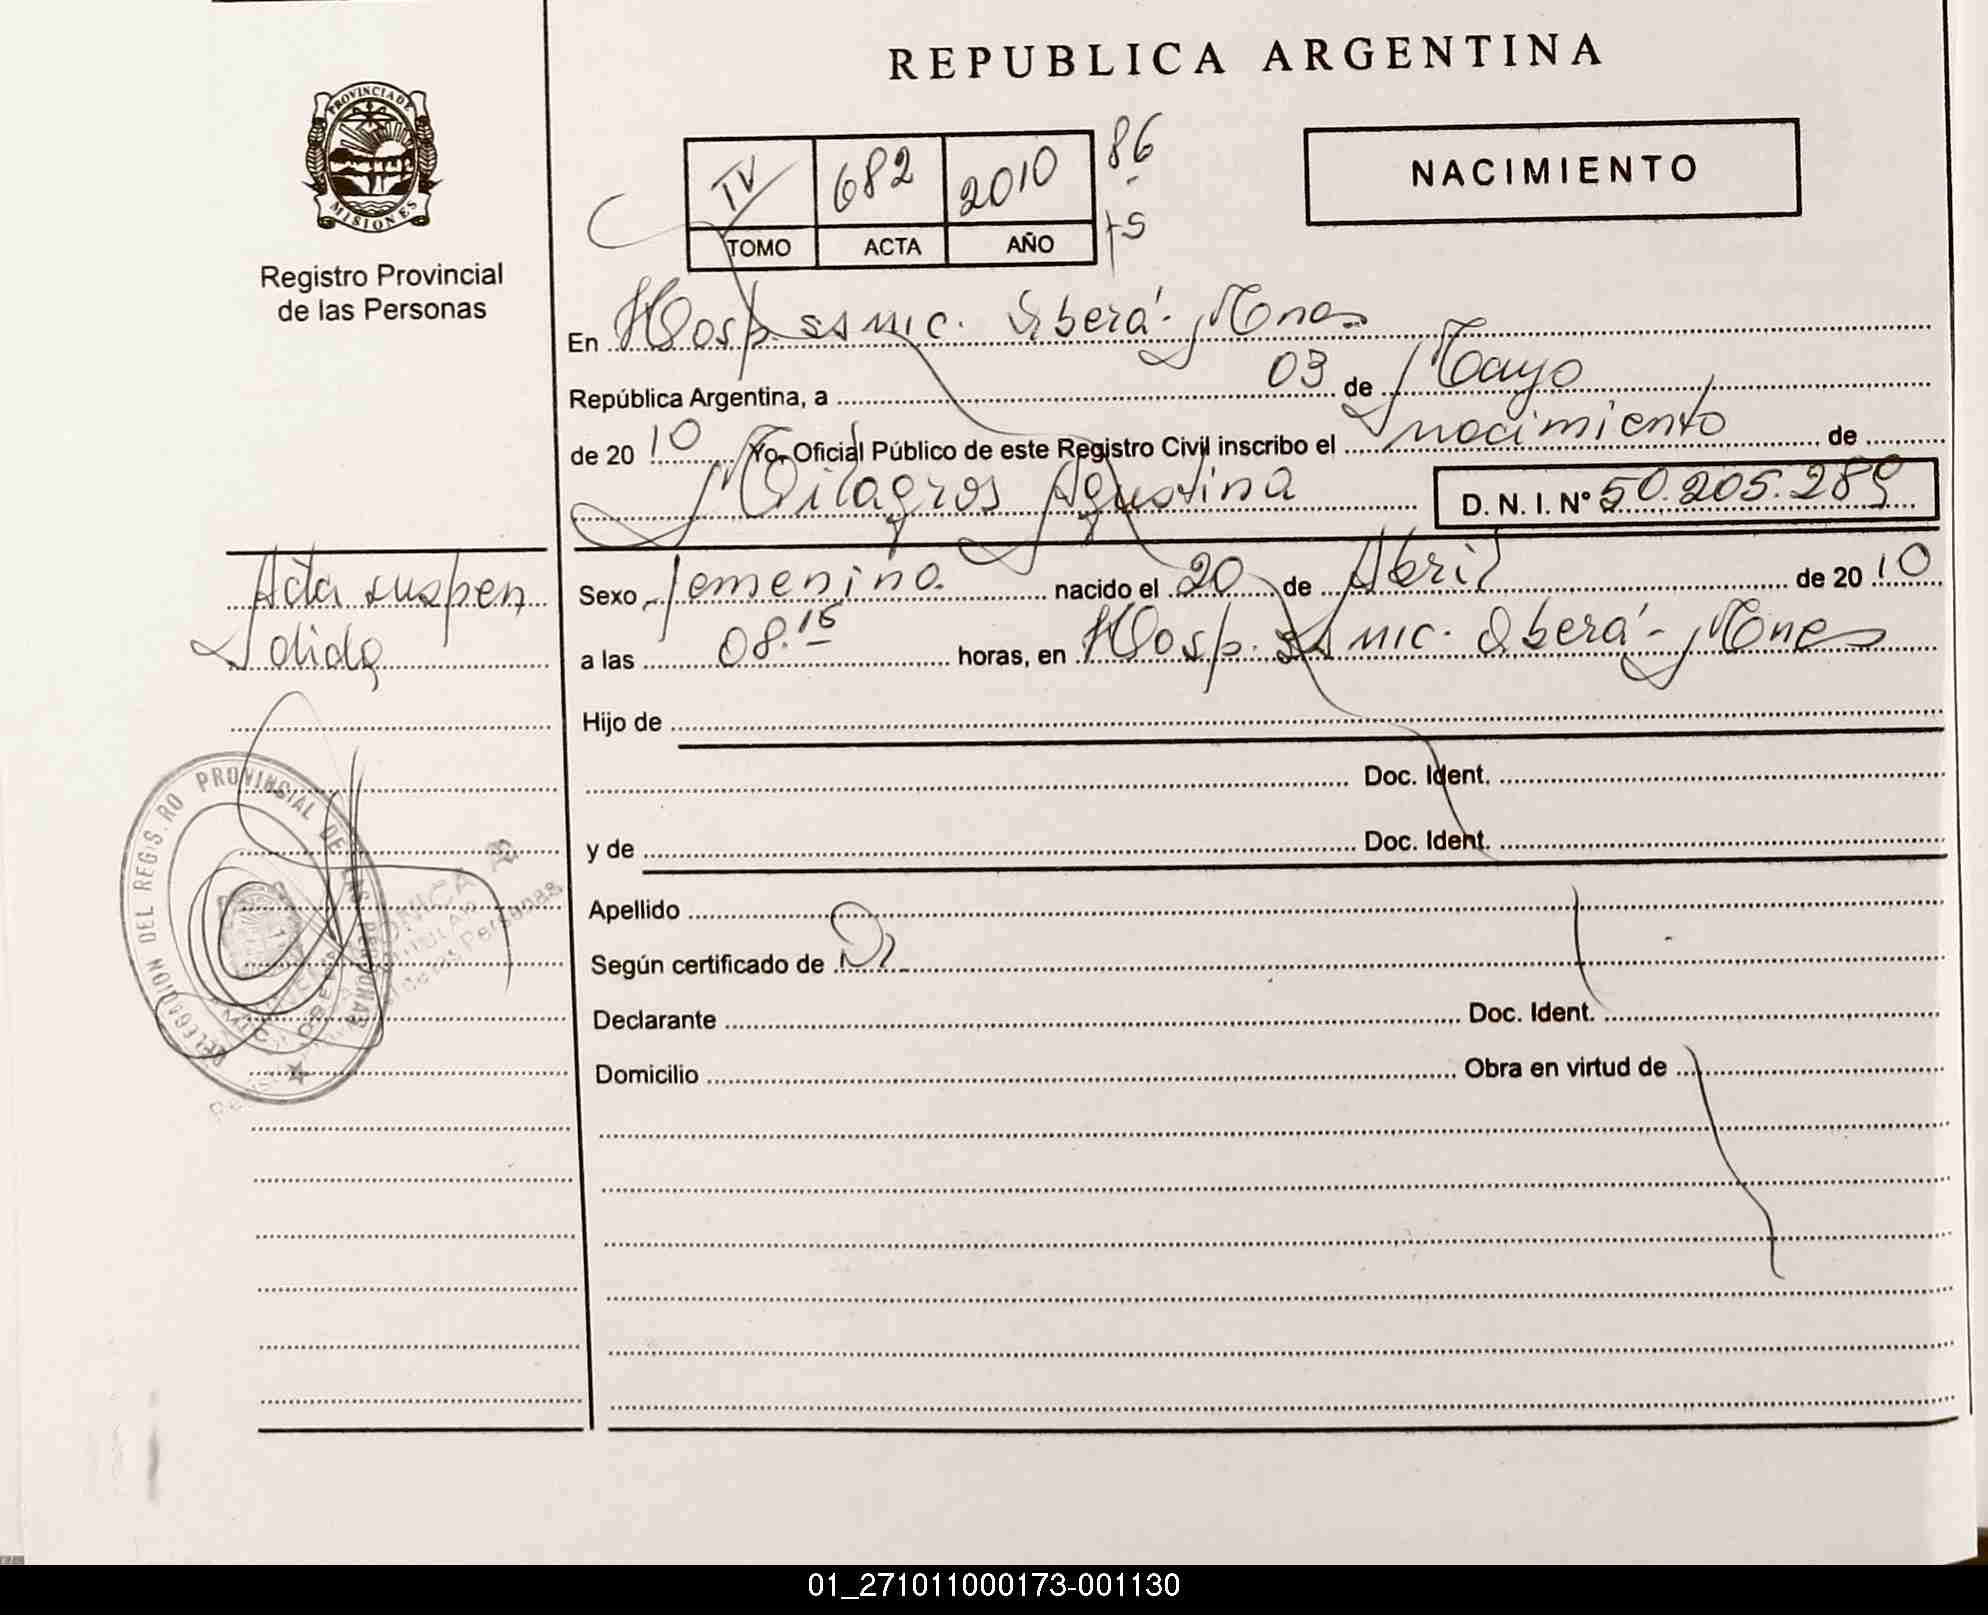 REPUBLICA ARGENTINA
PROVINCIA DE
MISIONES
Registro Provincial
de las Personas
IV 682 2010 86
TOMO ACTA AÑO
NACIMIENTO
En Hosp. SSMIC. Oberá - Mnes
República Argentina, a 03 de Mayo
de 2010 Yo, Oficial Público de este Registro Civil inscribo el nacimiento de
Milagros Agustina D. N. I. Nº 50.205.289
Sexo femenino nacido el 20 de Abril de 2010
a las 08.15 horas, en Hosp. SSMIC. Oberá - Mnes
Hijo de
Doc. Ident.
y de Doc. Ident.
Apellido
Según certificado de
Declarante Doc. Ident.
Domicilio Obra en virtud de
Acta suspen
dida
DELEGACION DEL REGISTRO PROVINCIAL DE LAS PERSONAS
01_271011000173-001130